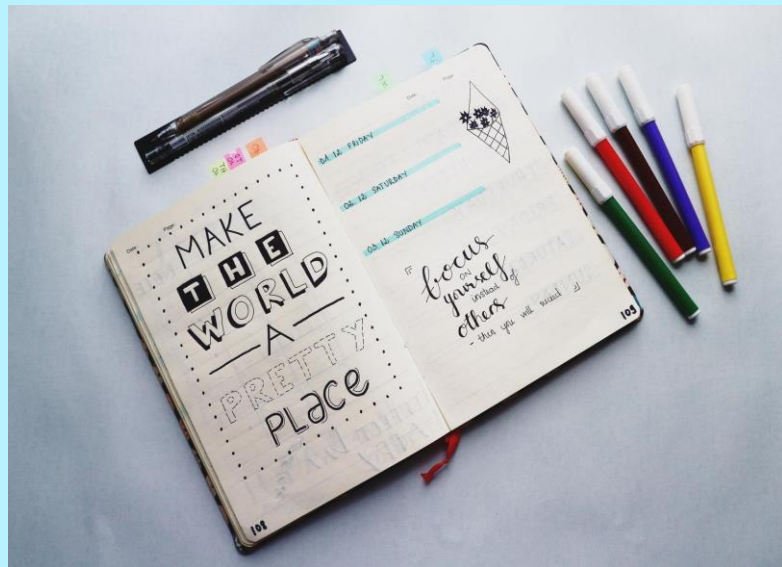 Date: Page:
MAKE
THE
WORLD
A
PRETTY
PLACE
108
Date: Page:
01 12 FRIDAY
02 12 SATURDAY
03 12 SUNDAY
focus
ON
yourself
instead of
others
- then you will succeed
109